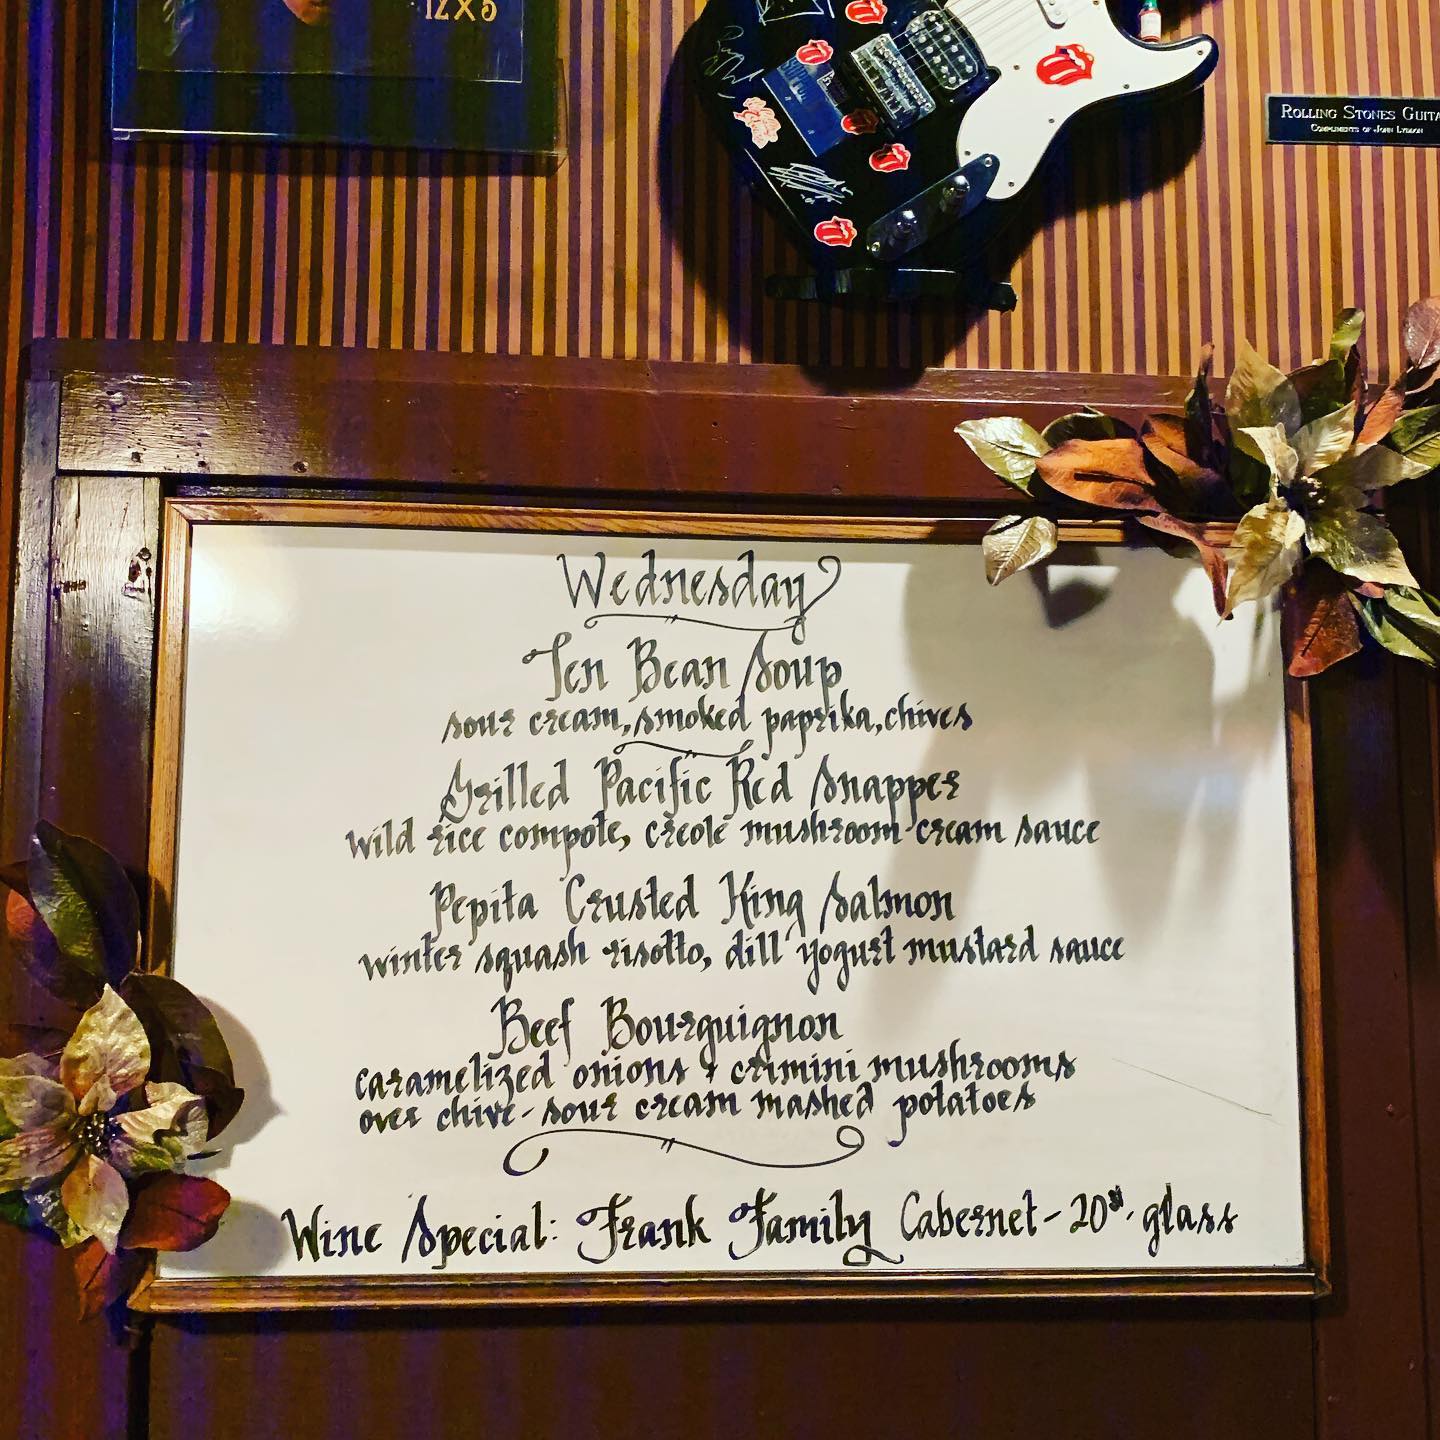 ROLLING STONES GUITA
COMPLIMENTS OF JOHN LYDON
Wednesday
Ten Bean Soup
sour cream, smoked paprika, chives
Grilled Pacific Red Snapper
wild rice compote, creole mushroom cream sauce
Pepita Crusted King Salmon
winter squash risotto, dill yogurt mustard sauce
Beef Bourguignon
caramelized onions + crimini mushrooms
over chive-sour cream mashed potatoes
Wine Special: Frank Family Cabernet - 20 glass